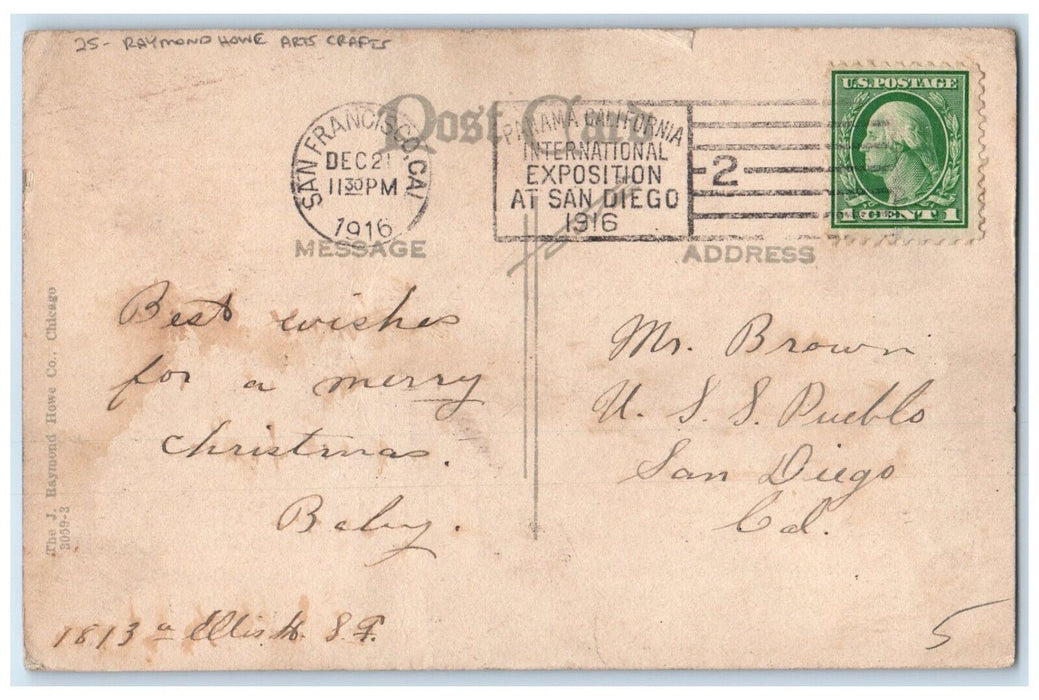 25- RAYMOND HOWE ARTS CRAFTS
Post Card
SAN FRANCISCO, CAL
DEC 21
11 30 PM
1916
PANAMA CALIFORNIA
INTERNATIONAL
EXPOSITION
AT SAN DIEGO
1916
2
U.S. POSTAGE
1 CENT 1
MESSAGE
ADDRESS
Best wishes
for a merry
Christmas.
Baby.
1813 a Ellis St. S.F.
Mr. Brown
U. S. S. Pueblo
San Diego
Cal.
5
The J. Raymond Howe Co., Chicago
3059-3